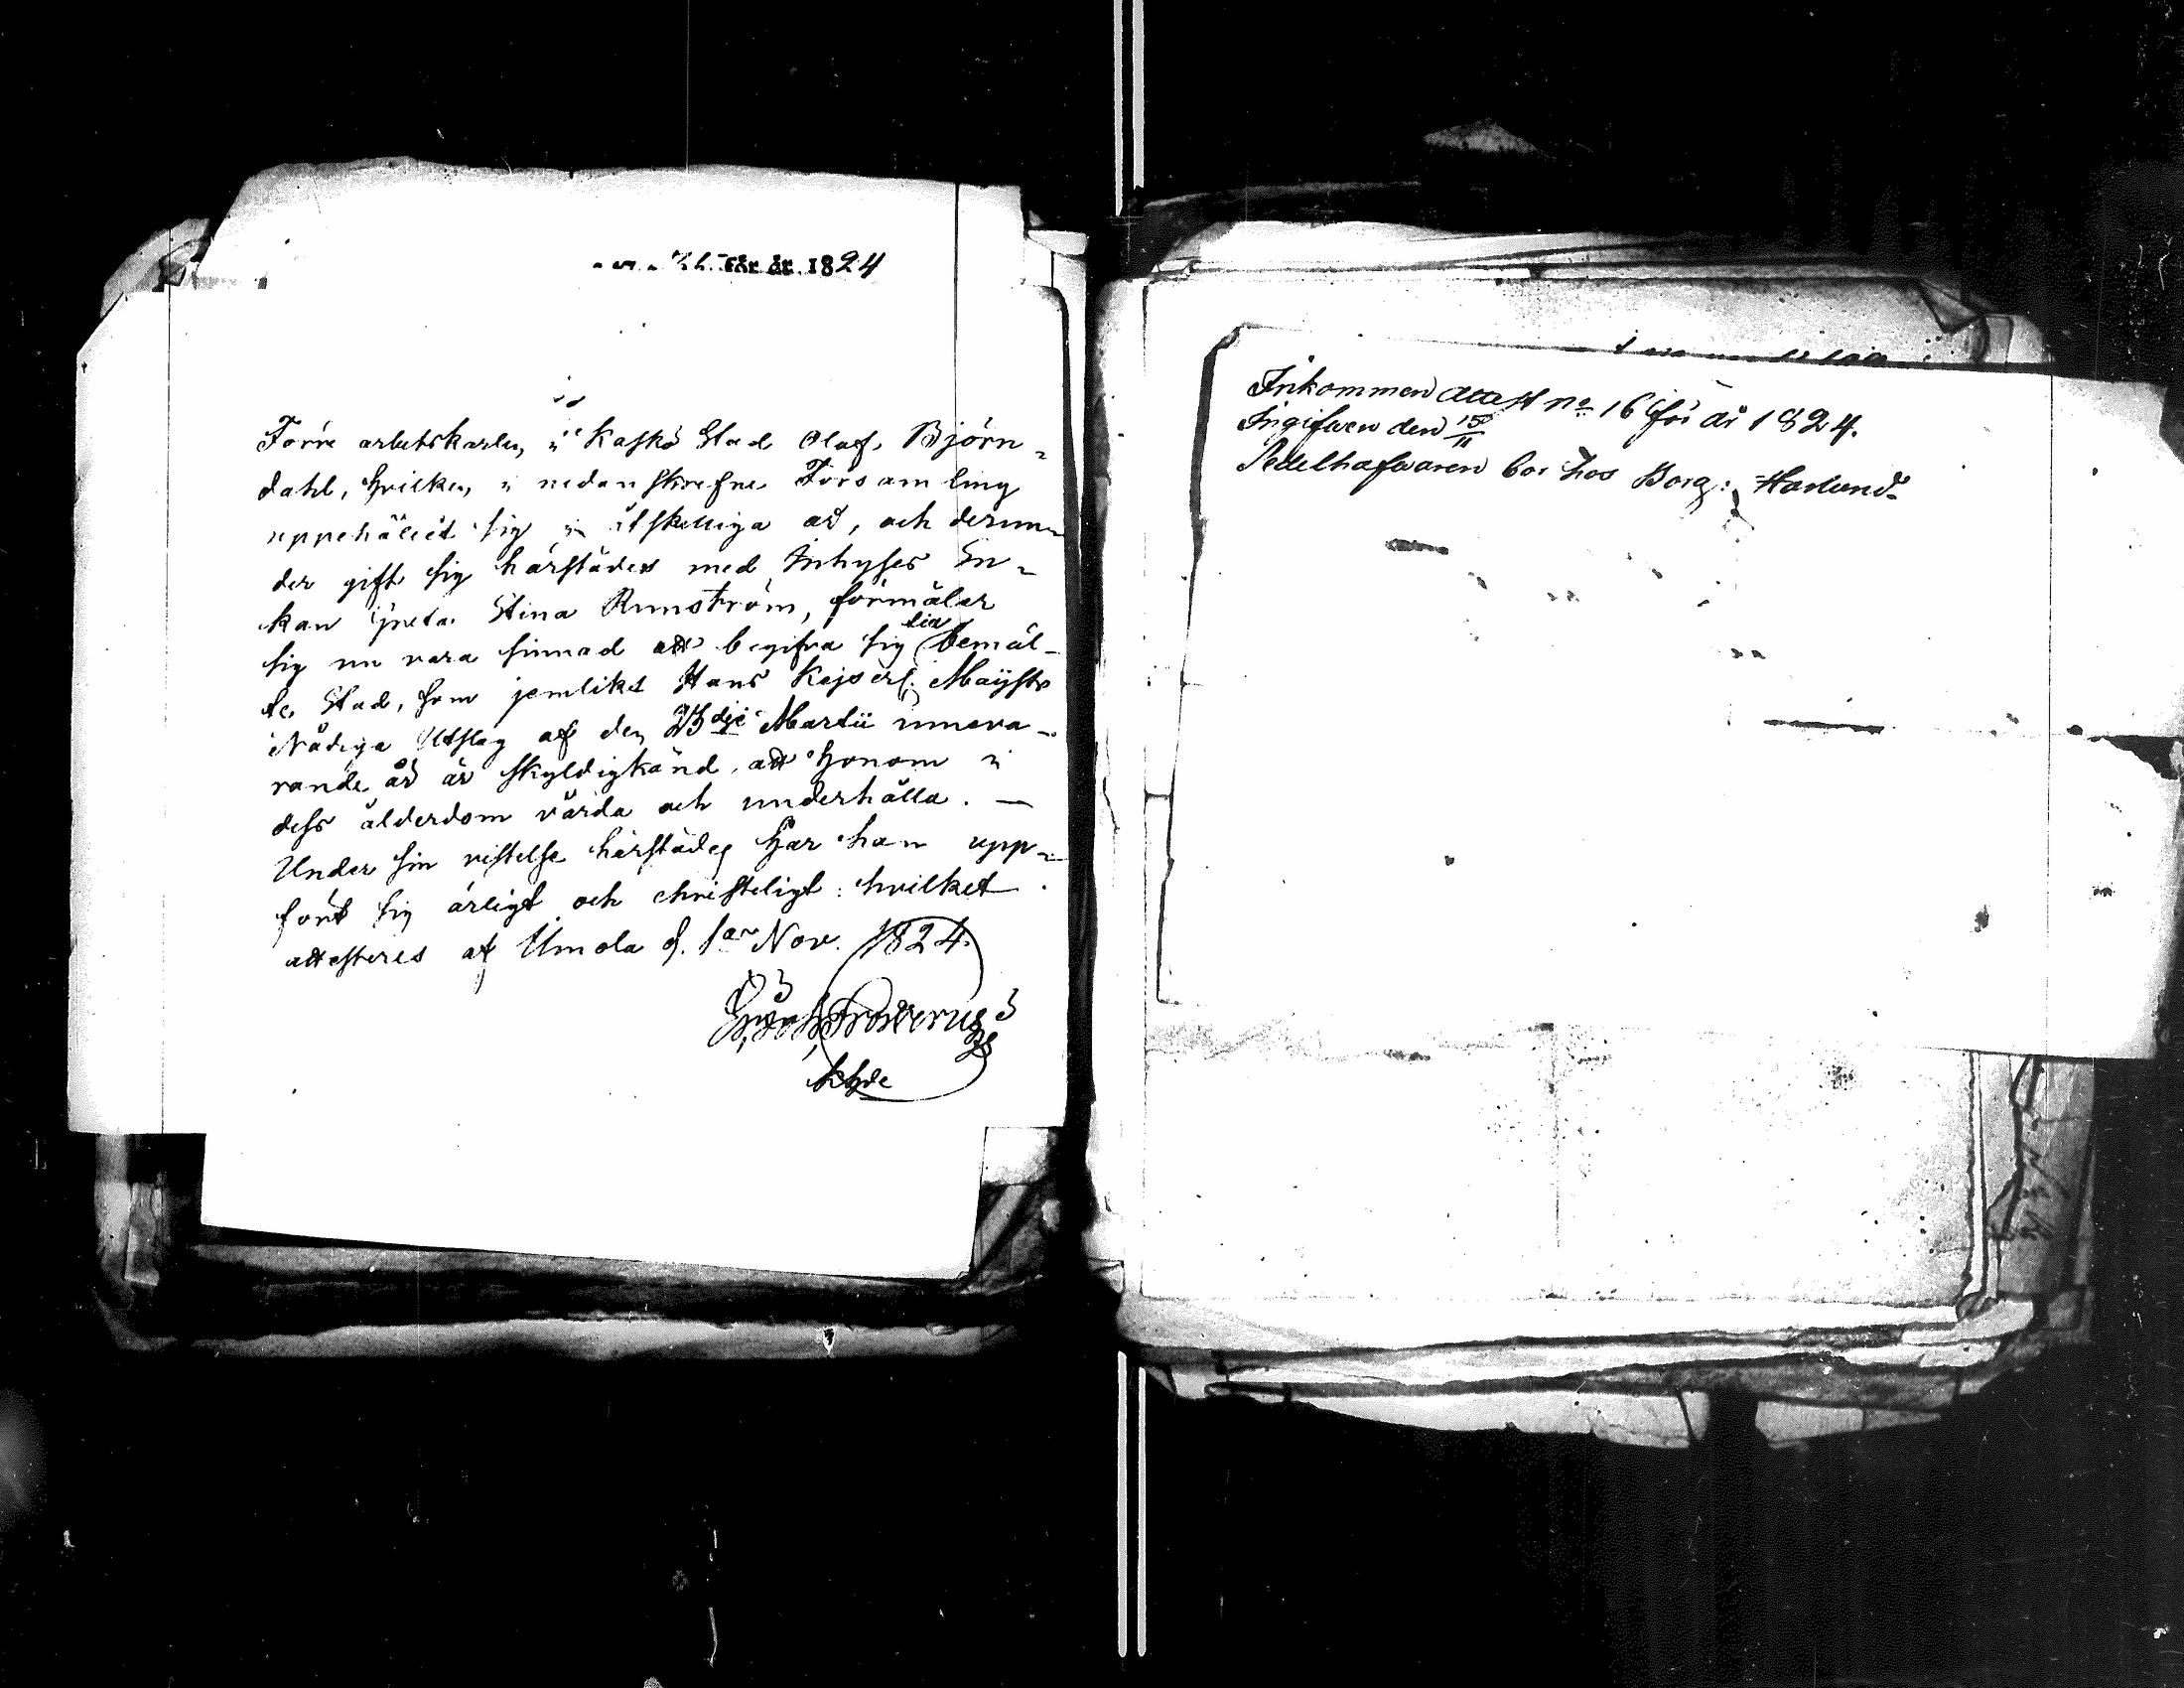 för år 1824
Förre arbetskarlen i Kaskö Stad Olof Björn-
dahl, hvilken i nedanskrefne Församling
uppehållit sig i åtskilliga år, och derun-
der gift sig härstädes med Inhyses En-
kan Greta Stina Runström, förmäler
sig nu vara sinnad att begifva sig till bemäl-
te Stad, som jemlikt Hans Kejserl. Maijsts
Nådiga Utslag af den 23dje Martii inneva-
rande år är skyldigkänd, att honom i
dess ålderdom vårda och underhålla. —
Under sin vistelse härstädes har han upp-
fört sig ärligt och christeligt: hvilket
attesteres af Umola d. 1a Nov. 1824.
Frosterus
Khde
Inkommen Attest No 16 för år 1824.
Ingifven den 15/11
Sedelhafvaren bor hos Borg: Haglund